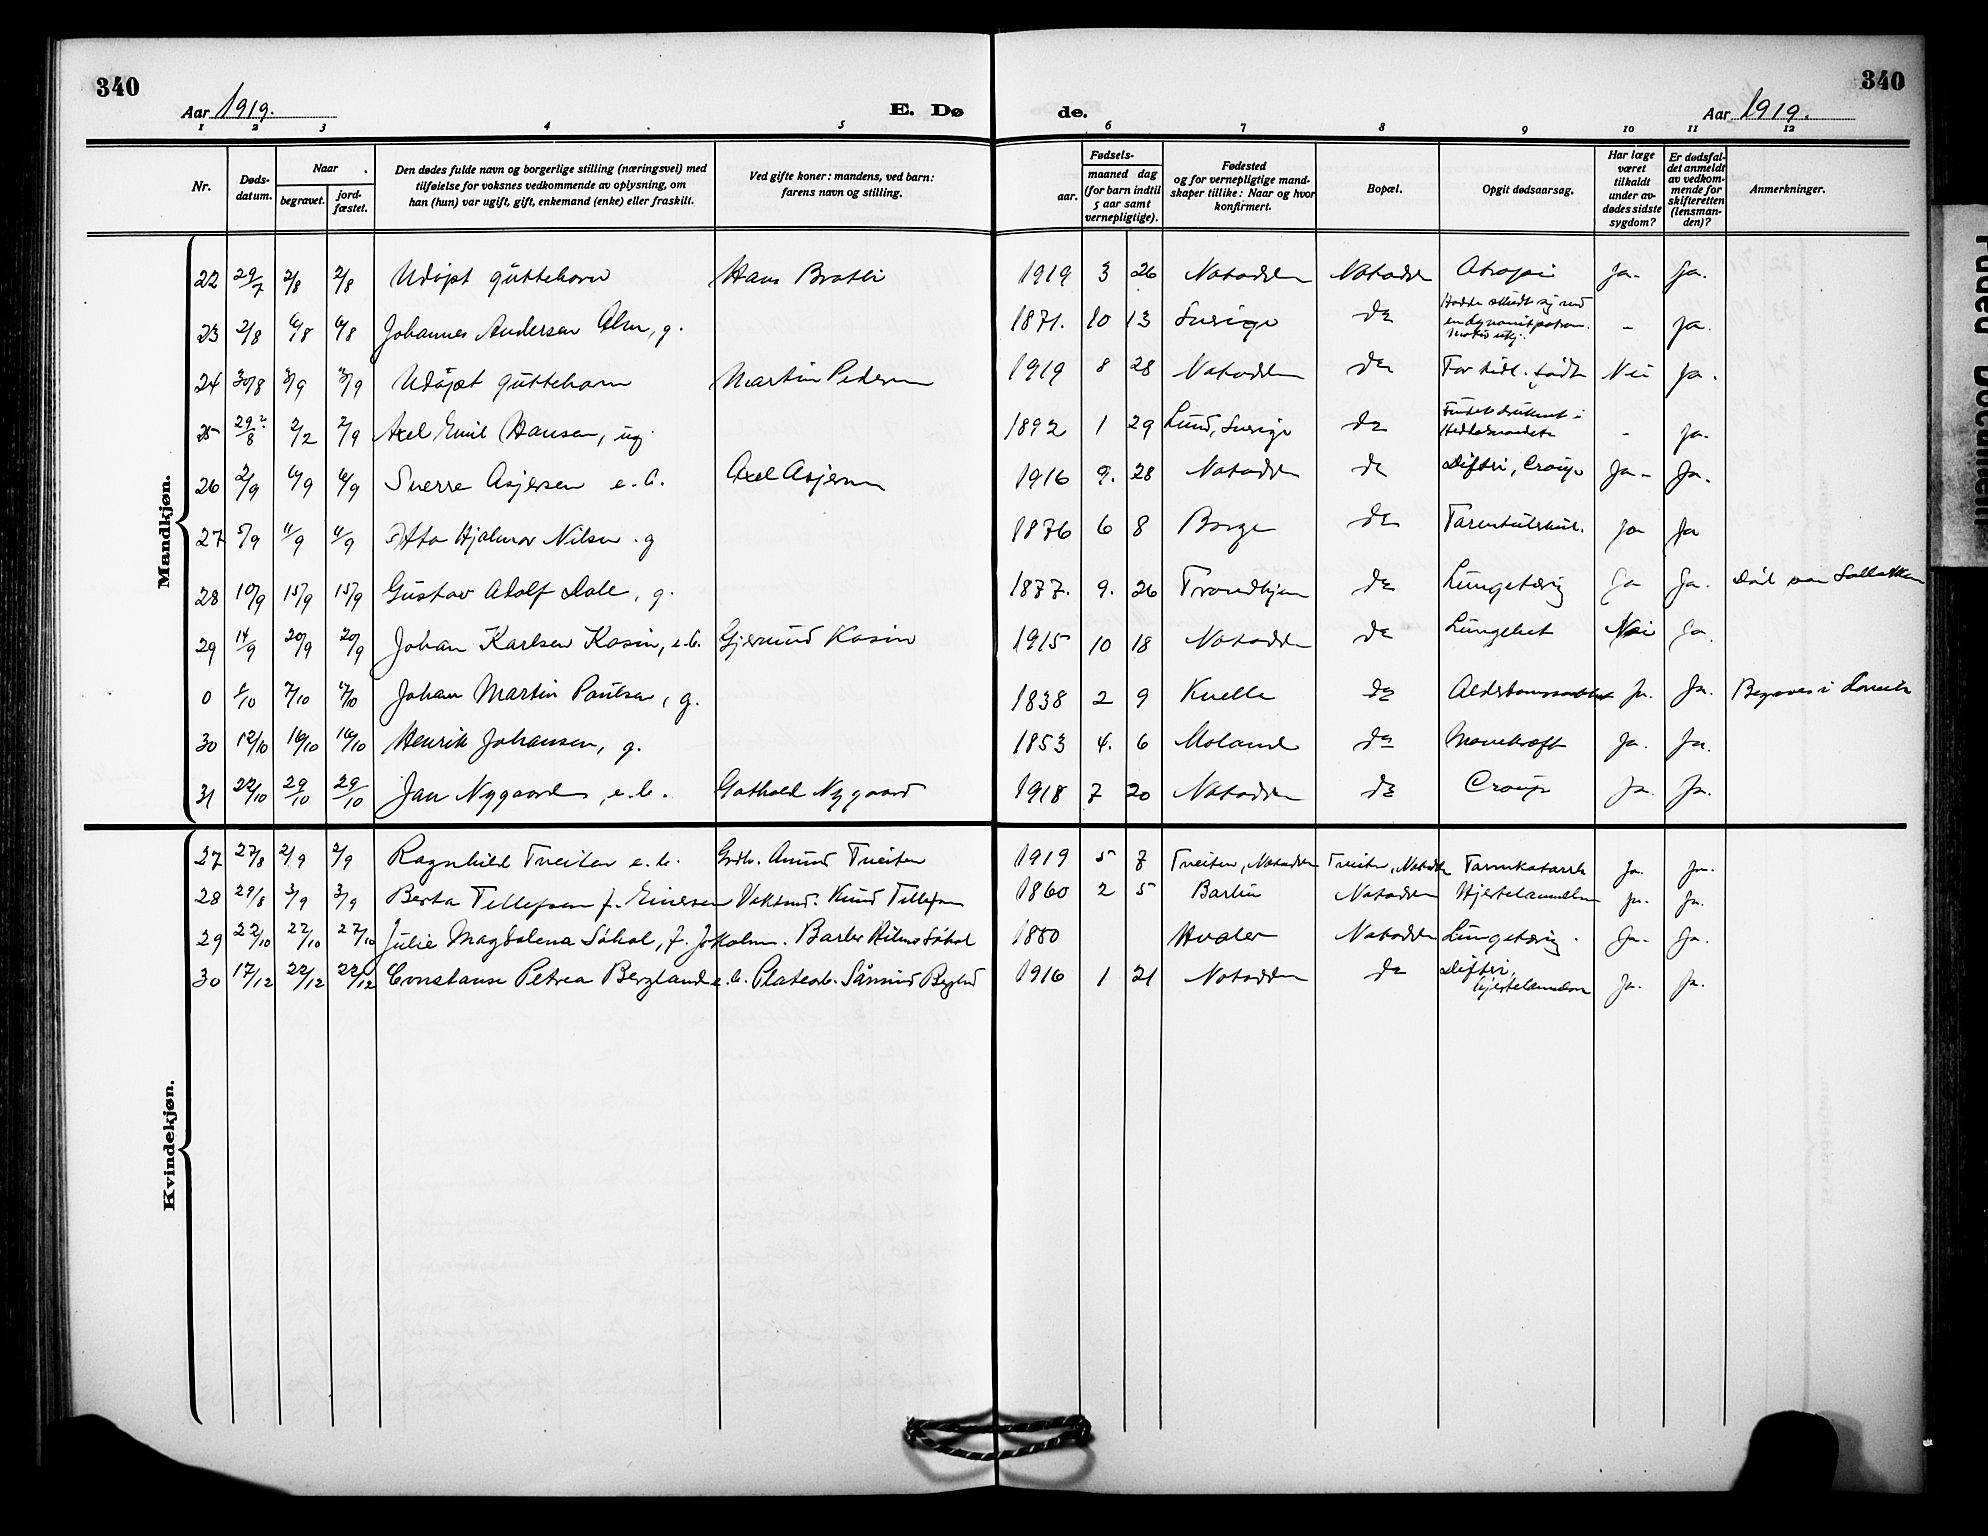 340
340
Aar 1919.
E. Dø
de.
Aar 1919.
1 2 3 4 5 6 7 8 9 10 11 12
Nr.
Døds-
datum.
Naar
begravet.
jord-
fæstet.
Den dødes fulde navn og borgerlige stilling (næringsvei) med
tilføielse for voksnes vedkommende av oplysning, om
han (hun) var ugift, gift, enkemand (enke) eller fraskilt.
Ved gifte koner: mandens, ved barn:
farens navn og stilling.
Fødsels-
aar.
maaned dag
(for barn indtil
5 aar samt
vernepligtige).
Fødested
og for vernepligtige mand-
skaper tillike: Naar og hvor
konfirmert.
Bopæl.
Opgit dødsaarsag.
Har læge
været
tilkaldt
under av-
dødes sidste
sygdom?
Er dødsfal-
det anmeldt
av vedkom-
mende for
skifteretten
(lensman-
den)?
Anmerkninger.
Mandkjøn.
22 29/7 2/8 2/8 Udøpt guttebarn Hans Bratli 1919 3 26 Notodden Notodden Atropi Ja. Ja.
23 2/8 6/8 6/8 Johannes Andersen Alm, g. 1871. 10 13 Sverige do - ja.
24 30/8 3/9 3/9 Udøpt guttebarn Martin Pedersen 1919 8 28 Notodden do For tidl. født Nei Ja.
25 29/8? 2/2 2/9 Axel Emil Hansen, ug. 1892 1 29 Lund, Sverige do Fundet druknet i - ja.
26 2/9 6/9 6/9 Sverre Asjersen e.b. Axel Asjersen 1916 9. 28 Notodden do Difteri, Croup Ja- Ja.
27 5/9 11/9 11/9 Otto Hjalmar Nilsen. g 1876 6 8 Borge do Tarmtuberkul. ja Ja
28 10/9 15/9 15/9 Gustav Adolf Dale, g. 1877. 9. 26 Trondhjem do Lungetæring Ja Ja.
29 14/9 20/9 20/9 Johan Karlsen Kasin, e.b. Gjermund Kasin 1915 10 18 Notodden do Lungebet Nei Ja.
0 /10 7/10 Johan Martin Paulsen, g. 1838 2 9 do Ja. Ja. Begraves i
30 12/10 16/10 16/10 Henrik Johansen, g. 1853 4. 6 Moland do Mavekræft Ja. Ja.
31 22/10 29/10 29/10 Jan Nygaard, e.b. Gothold Nygaard 1918 7 20 Notodden do Croup Ja. Ja.
Kvindekjøn.
27 27/8 2/9 2/9 Ragnhild Tveiten e.b. Grdb. Amund Tveiten 1919 5 7 Tveiten, Notodden Tveiten, Notodden Tarmkatarrh Ja. Ja.
28 29/8 3/9 3/9 Berta Tellefsen f. Einersen Knud Tellefsen 1860 2 5 Notodden Ja. Ja.
29 22/10 27/10 27/10 Julie Magdalena Søhol, f. 1880 Hvaler Notodden Lungetæring. Ja. Ja.
30 17/12 22/12 22/12 Constanse Petrea Bergland e.b. 1916 1 21 Notodden do Difteri, Ja. Ja.